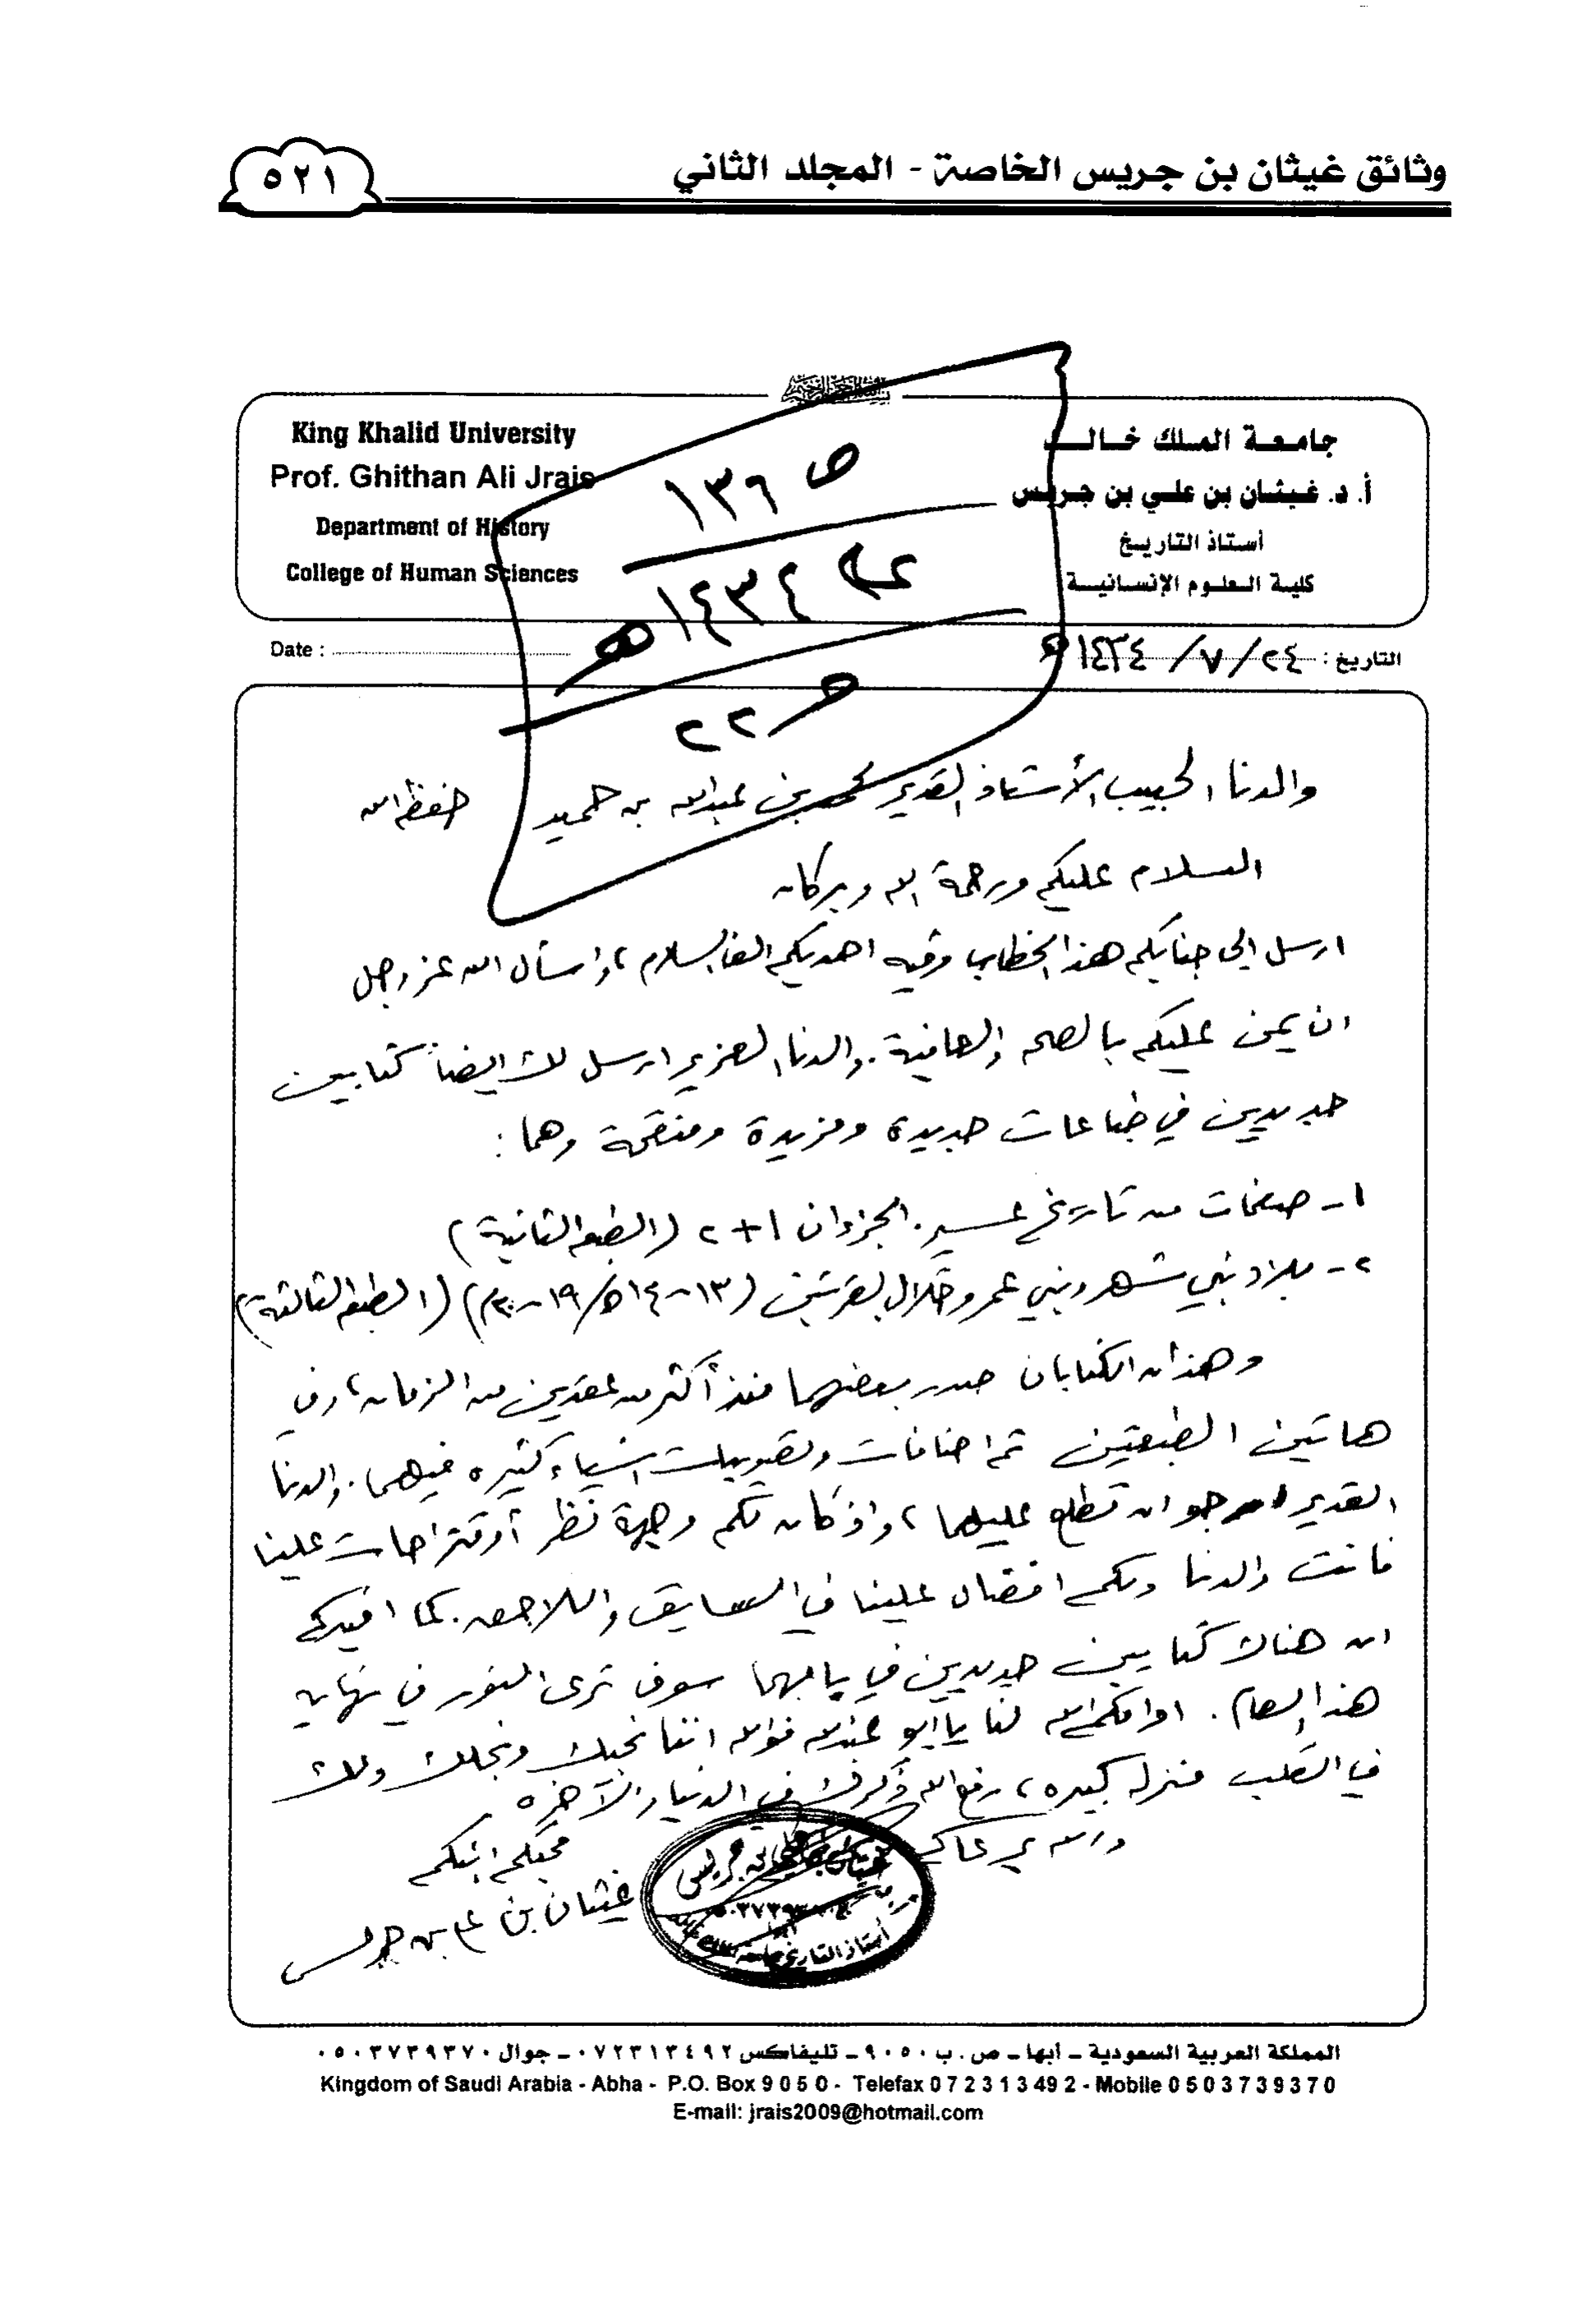 وثائق غيثان بن جريس الخاصة - المجلد الثاني
٥٢١
King Khalid University
Prof. Ghithan Ali Jrais
Department of History
College of Human Sciences
جامعة الملك خالد
أ. د. غيثان بن علي بن جريس
أستاذ التاريخ
كلية العلوم الإنسانية
ص ١٣٦
١٤٣٤هـ
٢٢
Date :
التاريخ : ٢٤/ ٧/ ١٤٣٤هـ
والدنا الحبيب الأستاذ القدير محمد بن عبدالله بن حميد حفظه الله
السلام عليكم ورحمة الله وبركاته
ارسل إلى جنابكم هذا الخطاب وفيه اهديكم الف السلام، واسأل الله عز وجل
ان يمن عليكم بالصحه والعافية. والدنا العزيز ارسل لك ايضاً كتابين
جديدين في طباعات جديدة ومزيدة ومنقحة وهما :
١- صفحات من تاريخ عسير. الجزءان ١+٢ (الطبعه الثانية)
٢- بلاد بني شهر وبني عمرو خلال القرنين (١٣-١٤هـ/١٩-٢٠م) (الطبعه الثالثة)
وهذان الكتابان صدر بعضهما منذ أكثر من عقدين من الزمان، وفي
هاتين الطبعتين تم اضافات وتصويبات اشياء كثيره فيهما. والدنا
القدير ارجو ان تطلع عليهما، واذ كان لكم وجهة نظر أو قتراحات علينا
فانت والدنا ولكم افضال علينا في السابق واللاحق. كما افيدكم
ان هناك كتابين جديدين في بابهما سوف ترى النور في نهايه
هذا العام. ادامكم الله لنا يا ابو عبدالله فوالله اننا نحبك ونجلك ولك
في القلب منزله كبيره، رفع الله ذكرك في الدنيا والآخره
والله يرعاكم
محبكم ابنكم
غيثان بن علي بن جريس
أستاذ التاريخ
المملكة العربية السعودية - أبها - ص. ب ٩٠٥٠ - تليفاكس ٠٧٢٣١٣٤٩٢ - جوال ٠٥٠٣٧٣٩٣٧٠
Kingdom of Saudi Arabia - Abha - P.O. Box 9 0 5 0 - Telefax 0 7 2 3 1 3 49 2 - Mobile 0 5 0 3 7 3 9 3 7 0
E-mail: jrais2009@hotmail.com